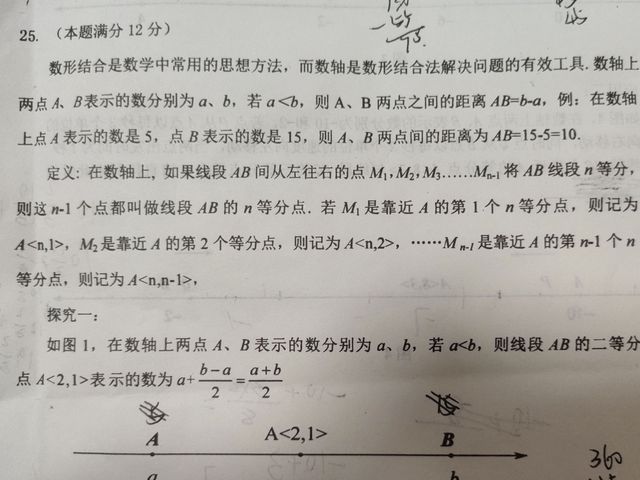 25. （本题满分 12 分）
数形结合是数学中常用的思想方法，而数轴是数形结合法解决问题的有效工具. 数轴上
两点 A、B表示的数分别为 a、b，若 a<b，则 A、B 两点之间的距离 AB=b-a，例：在数轴
上点 A 表示的数是 5，点 B 表示的数是 15，则 A、B 两点间的距离为 AB=15-5=10.
定义: 在数轴上, 如果线段 AB 间从左往右的点 M₁,M₂,M₃……Mₙ₋₁ 将 AB 线段 n 等分，
则这 n-1 个点都叫做线段 AB 的 n 等分点. 若 M₁ 是靠近 A 的第 1 个 n 等分点，则记为
A<n,1>，M₂是靠近 A 的第 2 个等分点，则记为 A<n,2>，……Mₙ₋₁ 是靠近 A 的第 n-1 个 n
等分点，则记为 A<n,n-1>，
探究一：
如图 1，在数轴上两点 A、B 表示的数分别为 a、b，若 a<b，则线段 AB 的二等分
点 A<2,1>表示的数为 a+(b-a)/2=(a+b)/2
A A<2,1> B
a b
360